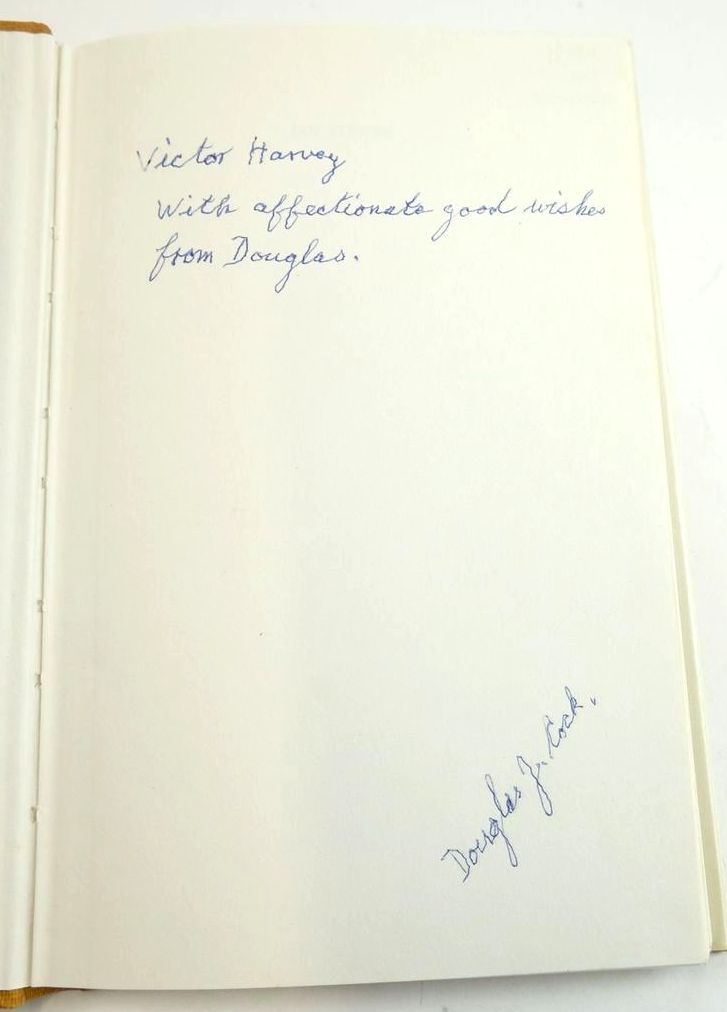 Victor Harvey
With affectionate good wishes
from Douglas.
Douglas J. Cock.